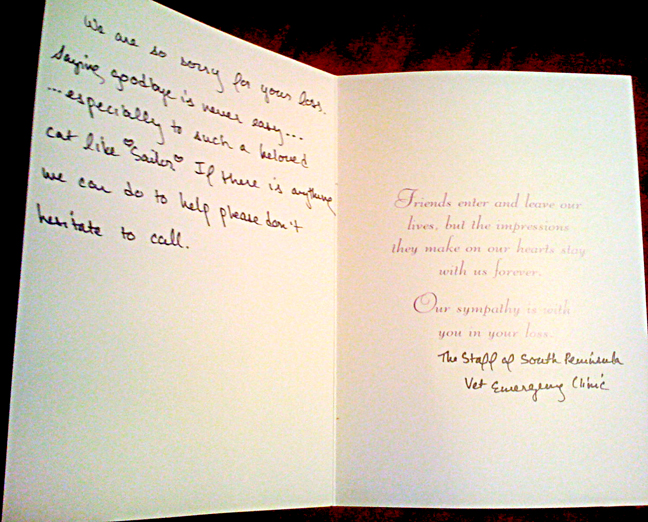 We are so sorry for your loss.
Saying goodbye is never easy...
...especially to such a beloved
cat like ♡Sailor♡ If there is anything
we can do to help please don't
hesitate to call.
Friends enter and leave our
lives, but the impressions
they make on our hearts stay
with us forever.
Our sympathy is with
you in your loss.
The Staff of South Peninsula
Vet Emergency Clinic